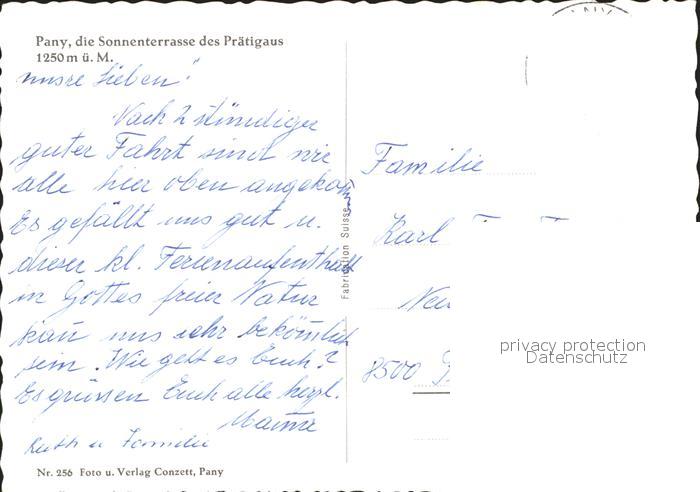 Pany, die Sonnenterrasse des Prätigaus
1250 m ü. M.
unsre Lieben!
Nach 2 stündiger
guter Fahrt sind wir
alle hier oben angekom̅en
Es gefällt uns gut u.
dieser kl. Ferienaufenthalt
in Gottes freier Natur
kan̅ uns sehr bekömlich
sein. Wie geht es Euch?
Es grüssen Euch alle herzl.
Ruth u Familie
Nr. 256 Foto u. Verlag Conzett, Pany
Fabrication Suisse
Familie
Karl
8500
privacy protection
Datenschutz